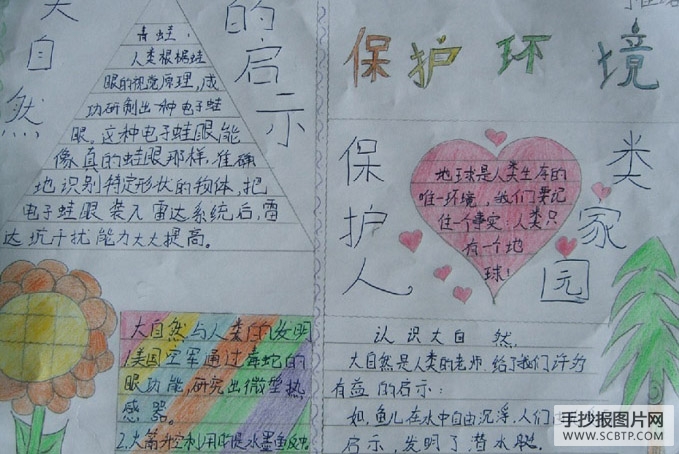 大自然的启示
青蛙：
人类根据蛙
眼的视觉原理，成
功研制出一种电子蛙
眼。这种电子蛙眼能
像真的蛙眼那样，准确
地识别特定形状的物体，把
电子蛙眼装入雷达系统后，雷
达坑干扰能力大大提高。
大自然与人类的发明
1.美国空军通过毒蛇的
眼功能，研究出微型热
感器。
2.火箭升空利用的是水墨鱼反冲
保护环境
保护人类家园
地球是人类生存的
唯一环境，我们要记
住一个事实：人类只
有一个地
球！
认识大自然
大自然是人类的老师，给了我们许多
有益的启示：
如，鱼儿在水中自由沉浮，人们
启示，发明了潜水艇。
手抄报图片网
WWW.SCBTP.COM